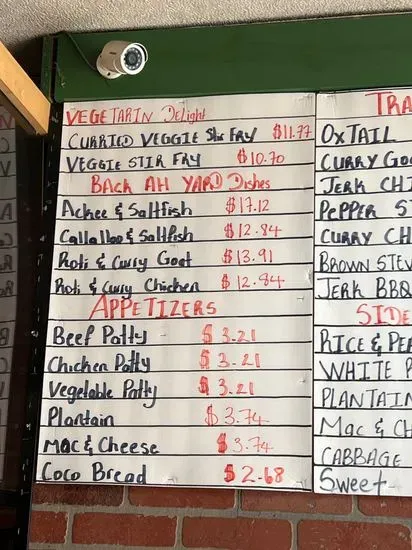 VEGETARIN Delight
CURRIED VEGGIE Stir FRY $11.77
VEGGIE STIR FRY $10.70
BACK AH YARD Dishes
Ackee & Saltfish $17.12
Callaloo & Saltfish $12.84
Roti & Curry Goat $13.91
Roti & Curry Chicken $12.84
APPETIZERS
Beef Patty $3.21
Chicken Patty $3.21
Vegetable Patty $3.21
Plantain $3.74
Mac & Cheese $3.74
Coco Bread $2.68
TRA
OXTAIL
CURRY GOA
JERK CHI
PePPER ST
CURRY CH
BROWN STEW
JERK BBQ
SIDE
RICE & PEA
WHITE
PLANTAIN
Mac & CH
CABBAGE
Sweet